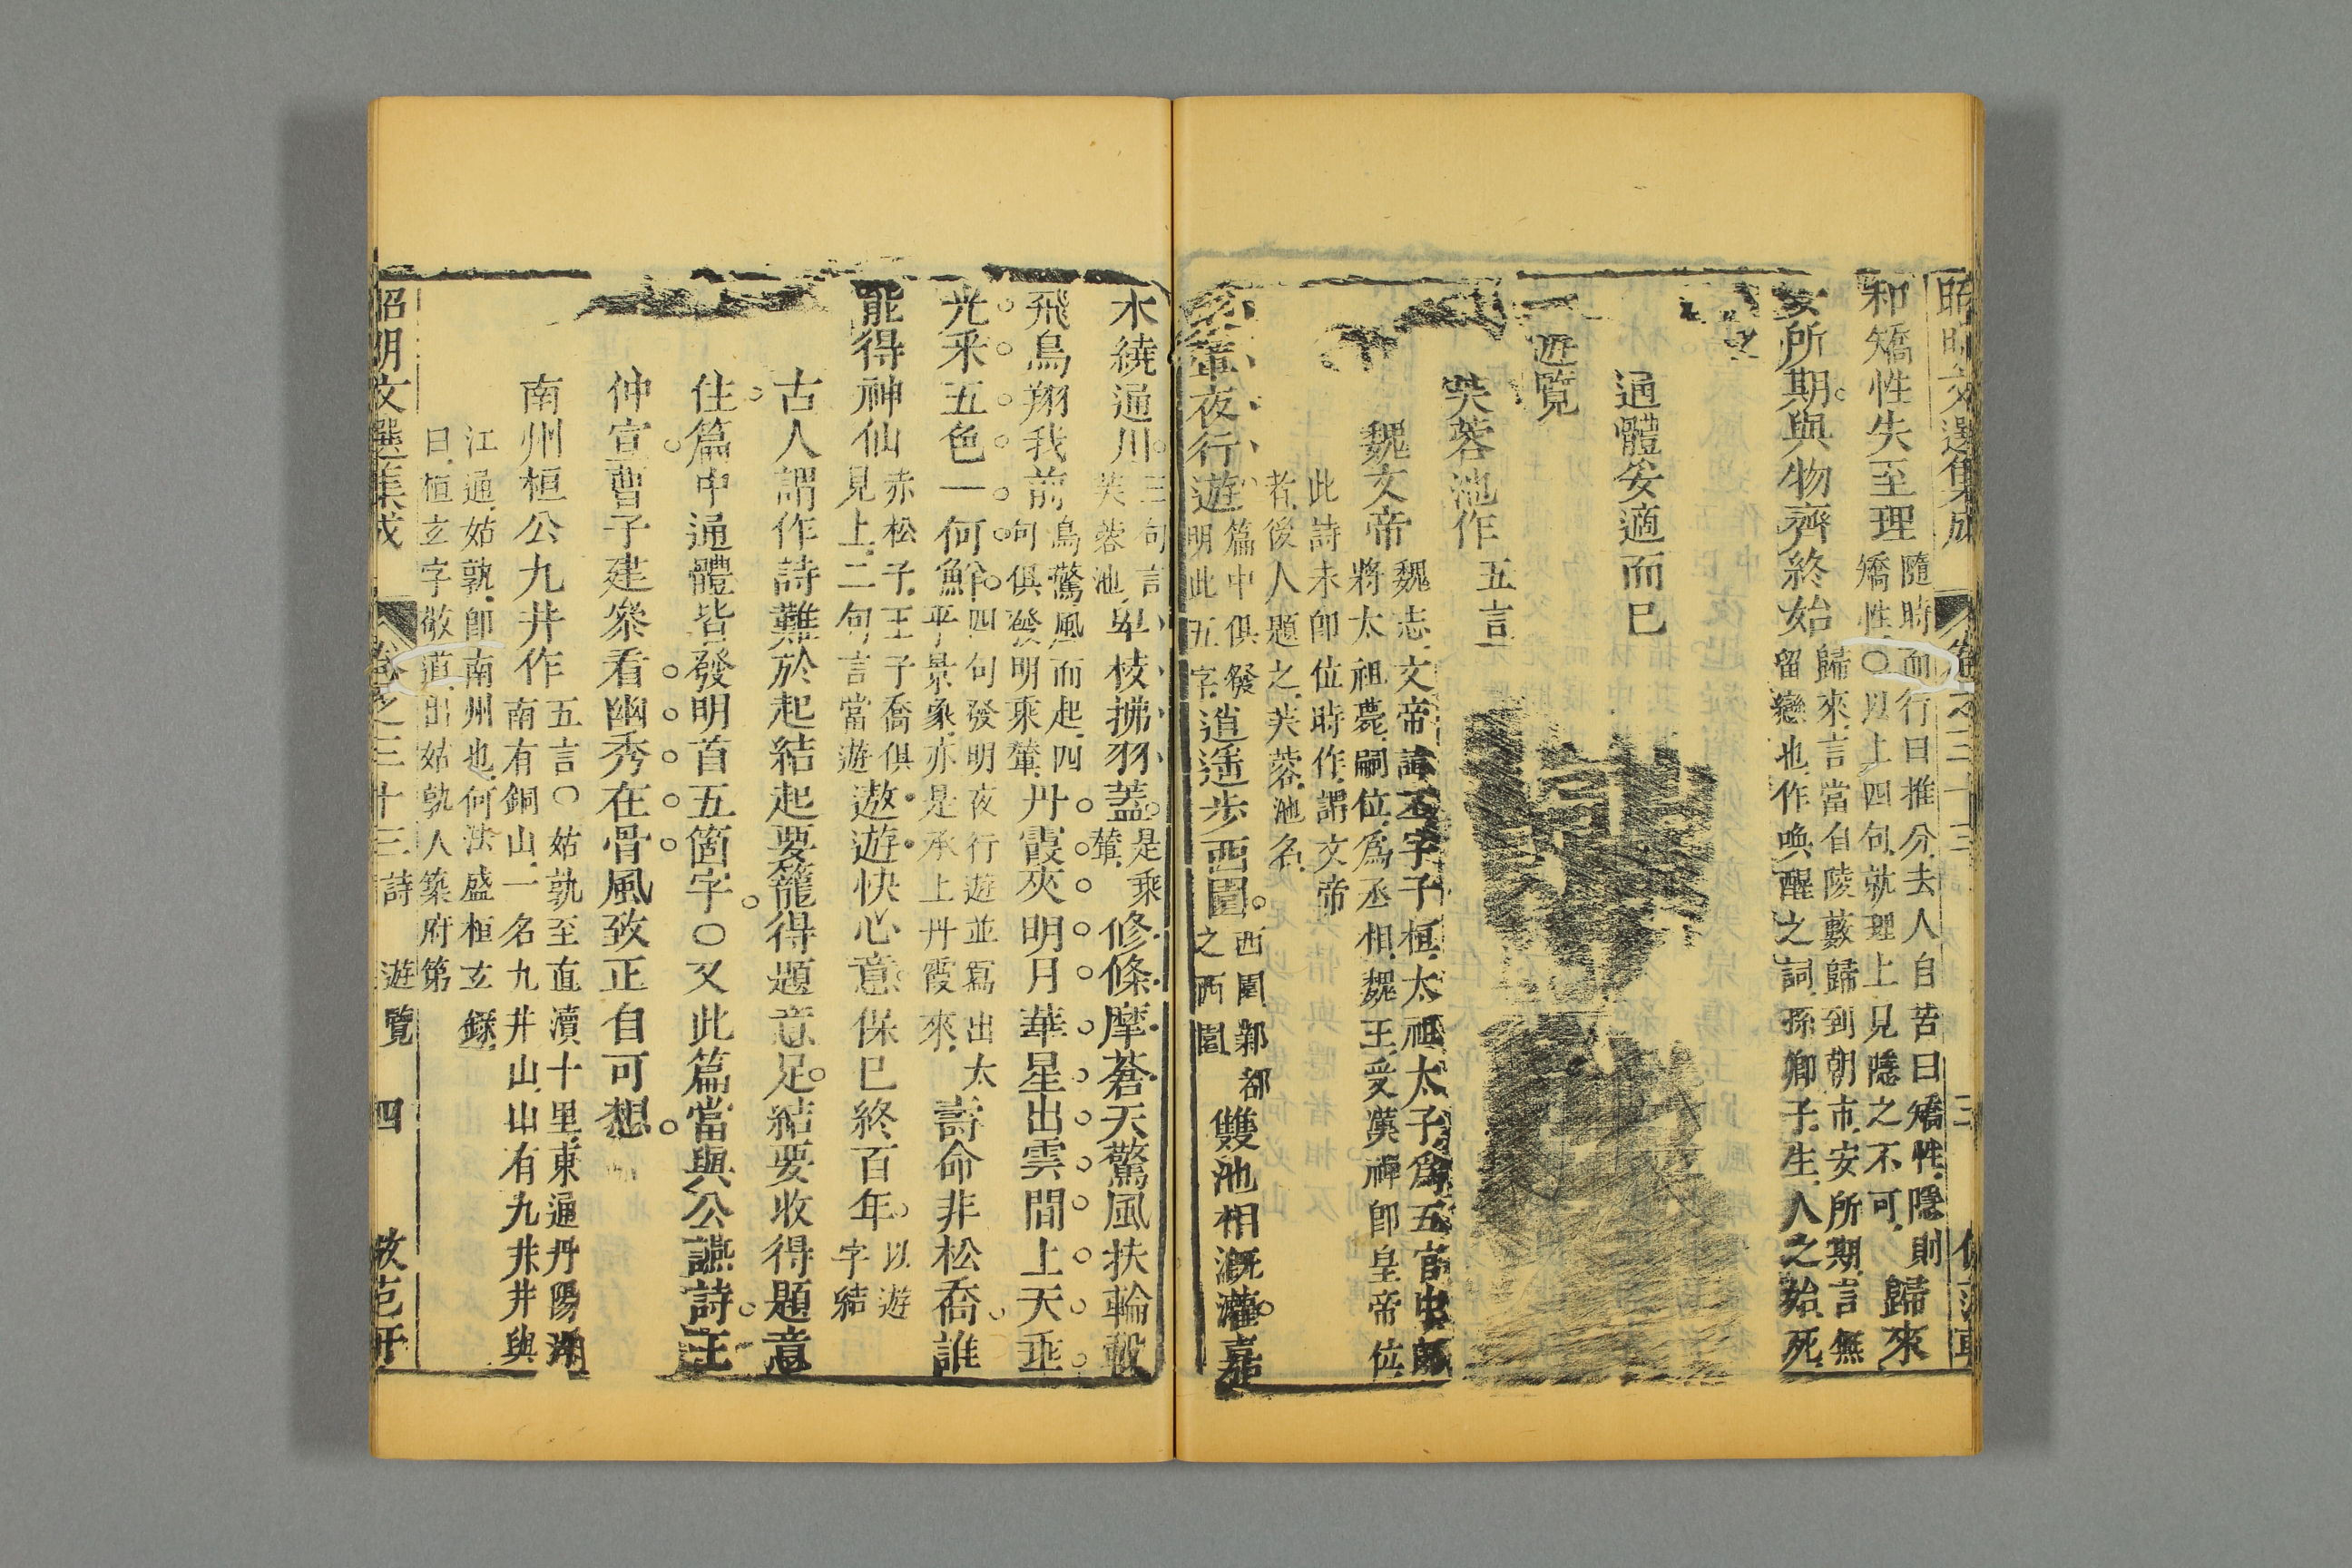 昭明文選集成 卷之三十三 三
和矯性失至理 隨時而行曰推分去人自苦曰矯性隱則 矯性○以上四句就理上見隱之不可 歸來
安所期與物齊終始 歸來言當自陵藪歸到朝市安所期言無 留戀也作喚醒之詞孫卿子生人之始死
通體妥適而已
遊覽
芙蓉池作 五言
魏文帝 魏志文帝諱丕字子桓太祖太子爲五官中郎 將太祖薨嗣位爲丞相魏王受漢禪卽皇帝位
此詩未卽位時作謂文帝 者後人題之芙蓉池名
乘輦夜行遊 篇中俱發 明此五字 逍遙步西園 西園鄴都 之西園 雙池相漑灌嘉
木繞通川 三句言 芙蓉池 卑枝拂羽蓋 是乘 輦 修條摩蒼天驚風扶輪轂
飛鳥翔我前 鳥驚風而起四 句俱發明乘輦 丹霞夾明月華星出雲間上天垂
光采五色一何鮮 四句發明夜行遊並寫出太 平景象亦是承上丹霞來 壽命非松喬誰
能得神仙 赤松子王子喬俱 見上二句言當遊 遨遊快心意保已終百年 以遊 字結
古人謂作詩難於起結起要籠得題意足結要收得題意
住篇中通體皆發明首五箇字○又此篇當與公讌詩王
仲宣曹子建參看幽秀在骨風致正自可想
南州桓公九井作 五言○姑孰至直瀆十里東通丹陽湖 南有銅山一名九井山山有九井井與
江通姑孰卽南州也何法盛桓玄錄 曰桓玄字敬道出姑孰人築府第
昭明文選集成 卷之三十三詩 遊覽 四